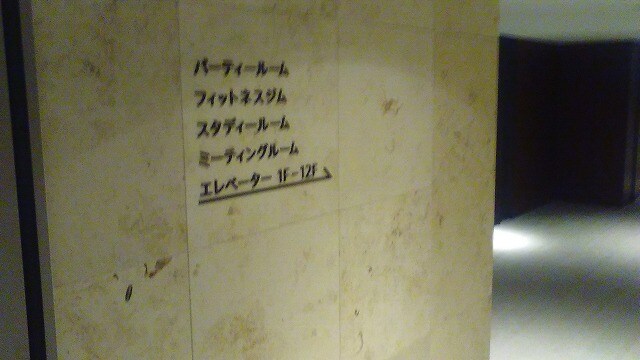 パーティールーム
フィットネスジム
スタディールーム
ミーティングルーム
エレベーター 1F-12F